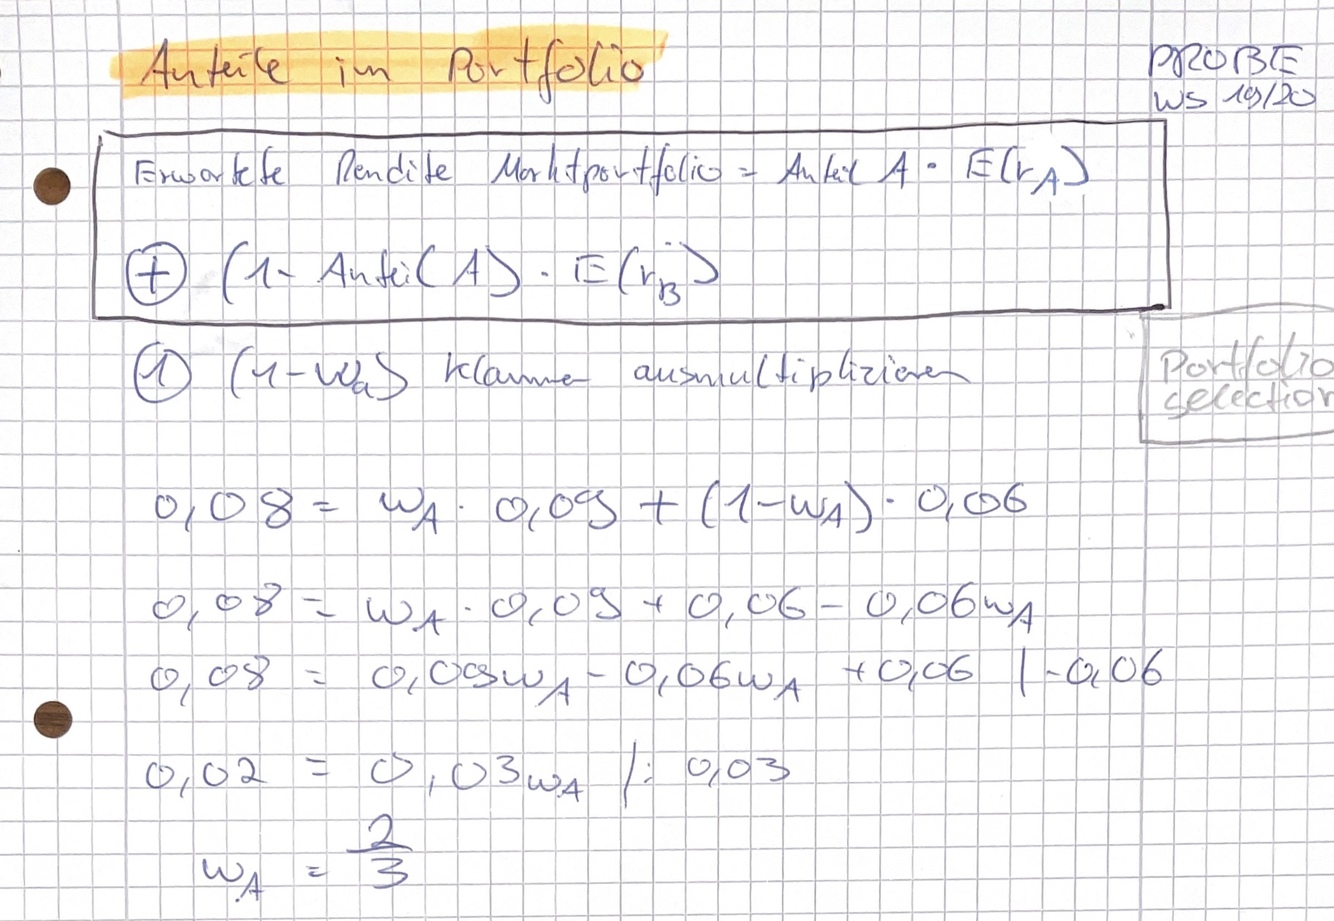 Anteile im Portfolio
PROBE
WS 19/20
Erwartete Rendite Marktportfolio = Anteil A · E(r_A)
⊕ (1 - Anteil A) · E(r_B)
① (1-w_a) Klammer ausmultiplizieren
Portfolio
selection
0,08 = w_A · 0,09 + (1-w_A) · 0,06
0,08 = w_A · 0,09 + 0,06 - 0,06w_A
0,08 = 0,09w_A - 0,06w_A + 0,06 | -0,06
0,02 = 0,03w_A | : 0,03
w_A = 2/3